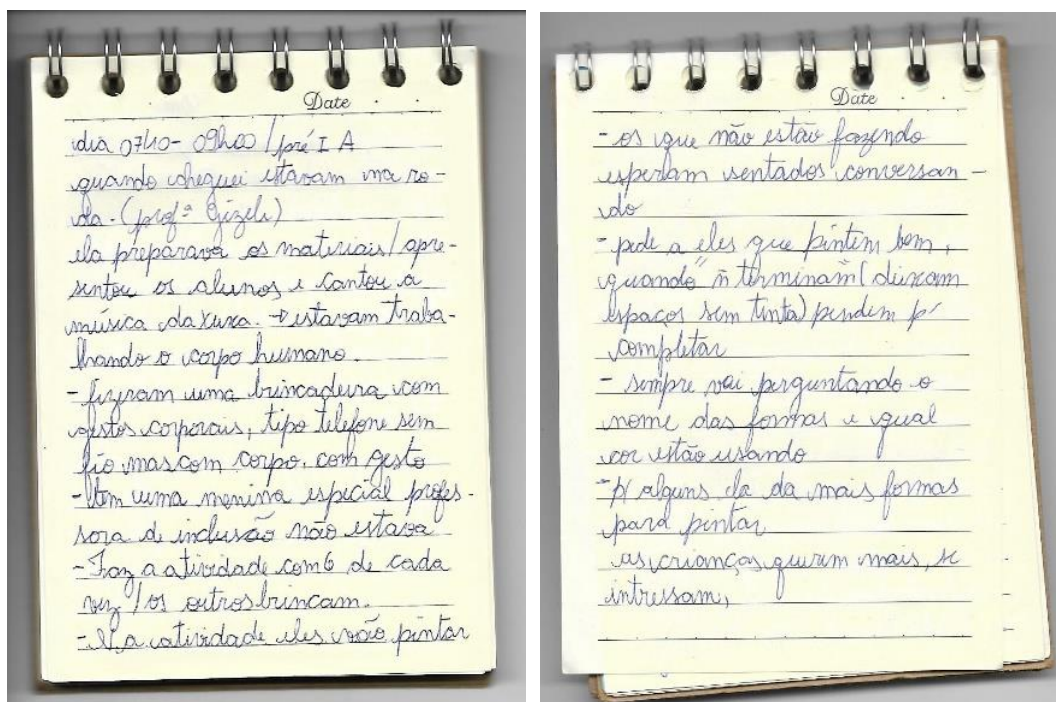 Date
dia 07/10 - 09h00 / pré I A
quando cheguei estavam na ro-
da. (profª Gizeli)
ela preparava os materiais / apre-
sentou os alunos e cantou a
música da xuxa. → estavam traba-
lhando o corpo humano.
- fizeram uma brincadeira com
gestos corporais, tipo telefone sem
fio mas com corpo. com gesto
- tem uma menina especial profes-
sora de inclusão não estava
- Faz a atividade com 6 de cada
vez / os outros brincam.
- N a atividade eles vão pintar
Date
- os que não estão fazendo
esperam sentados conversan-
do
- pede a eles que pintem bem,
quando "ñ terminam" (deixam
espaços sem tinta) pendem p/
completar
- sempre vai perguntando o
nome das formas e qual
cor estão usando
- p/ alguns ela da mais formas
para pintar
as crianças querem mais, se
intressam,